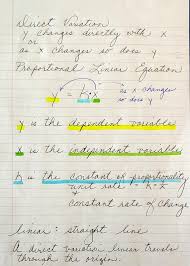 Direct Variation
y changes directly with x
or
as x changes so does y
Proportional Linear Equation
y = k·x
as x changes
so does y
y is the dependent variable
x is the independent variable
k is the constant of proportionality
unit rate = k·x
constant rate of change
linear: straight line
A direct variation linear travels
through the origin.